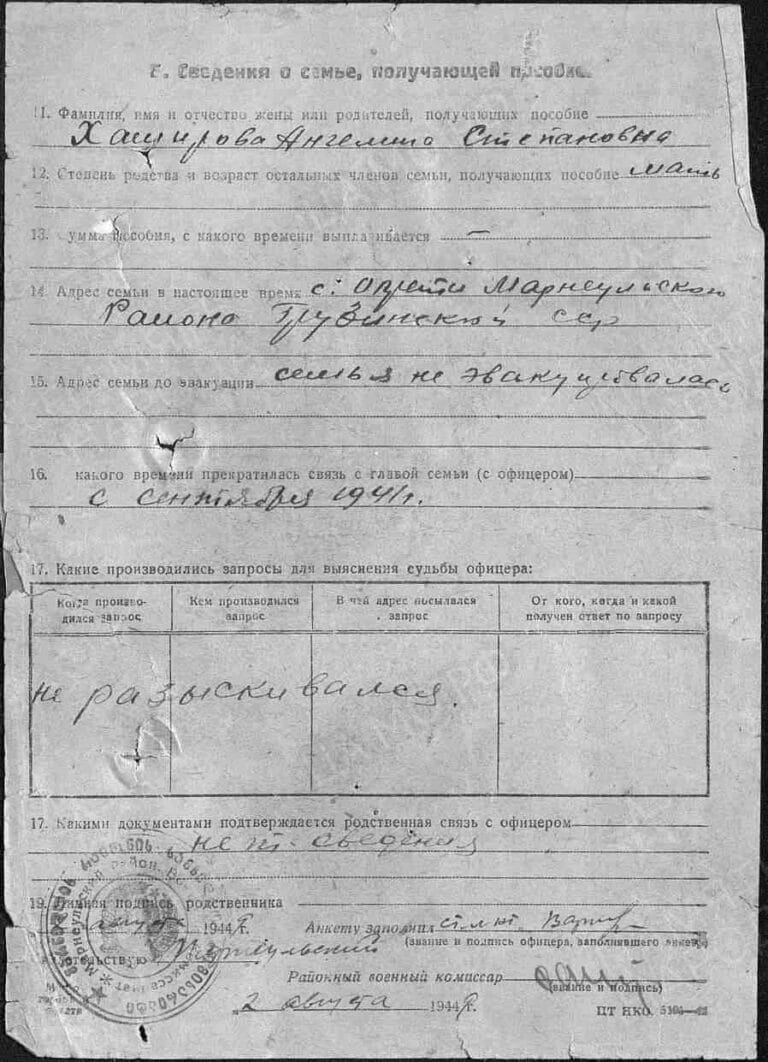 Б. Сведения о семье, получающей пособие.
11. Фамилия, имя и отчество жены или родителей, получающих пособие
Хаширова Ангелина Степановна
12. Степень родства и возраст остальных членов семьи, получающих пособие мать
13. Сумма пособия, с какого времени выплачивается —
14. Адрес семьи в настоящее время с. Опрети Марнеульского
Района Грузинской сср
15. Адрес семьи до эвакуации семья не эвакуировалась
16. какого времени прекратилась связь с главой семьи (с офицером)
с сентября 1941 г.
17. Какие производились запросы для выяснения судьбы офицера:
Когда произво-
дился запрос
Кем производился
запрос
В чей адрес посылался
запрос
От кого, когда и какой
получен ответ по запросу
не разыскивался.
17. Какими документами подтверждается родственная связь с офицером
нет сведения
19. Личная подпись родственника
1944 г.
Анкету заполнил ст. лт.
(звание и подпись офицера, заполнившего анкету)
Марнеульский
Районный военный комиссар
(звание и подпись)
2 августа 1944 г.
ПТ НКО.